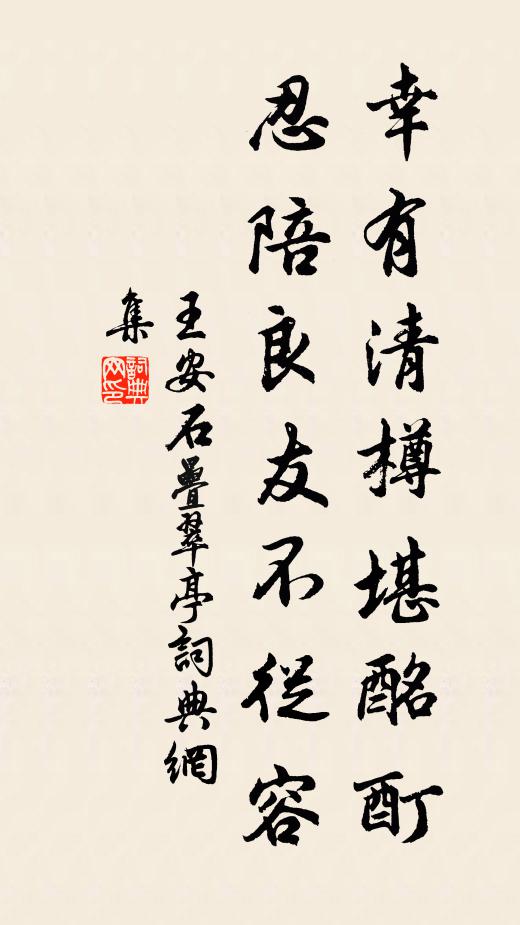 幸有清樽堪酩酊
忍陪良友不從容
王安石疊翠亭詞典網
集
詞典網印